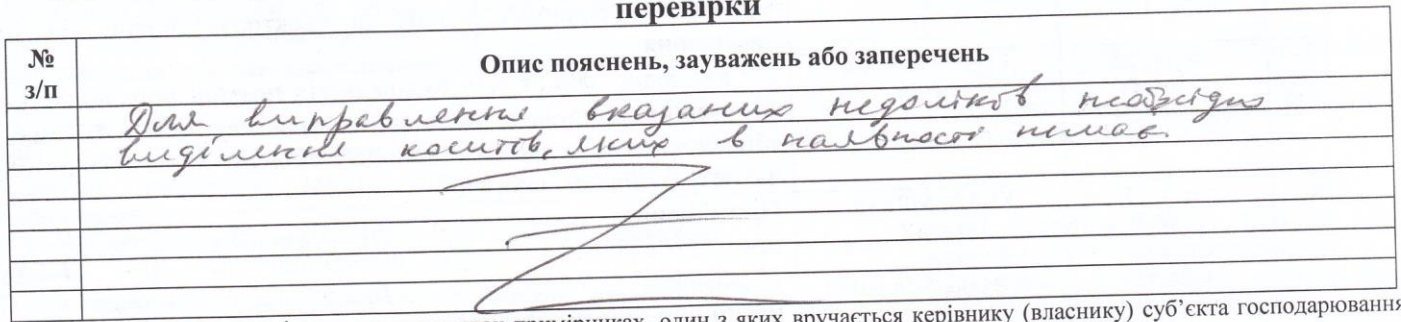 перевірки
№ з/п
Опис пояснень, зауважень або заперечень
Для виправлення вказаних недоліків необхідно
виділення коштів, яких в наявності немає.
примірниках, один з яких вручається керівнику (власнику) суб’єкта господарювання